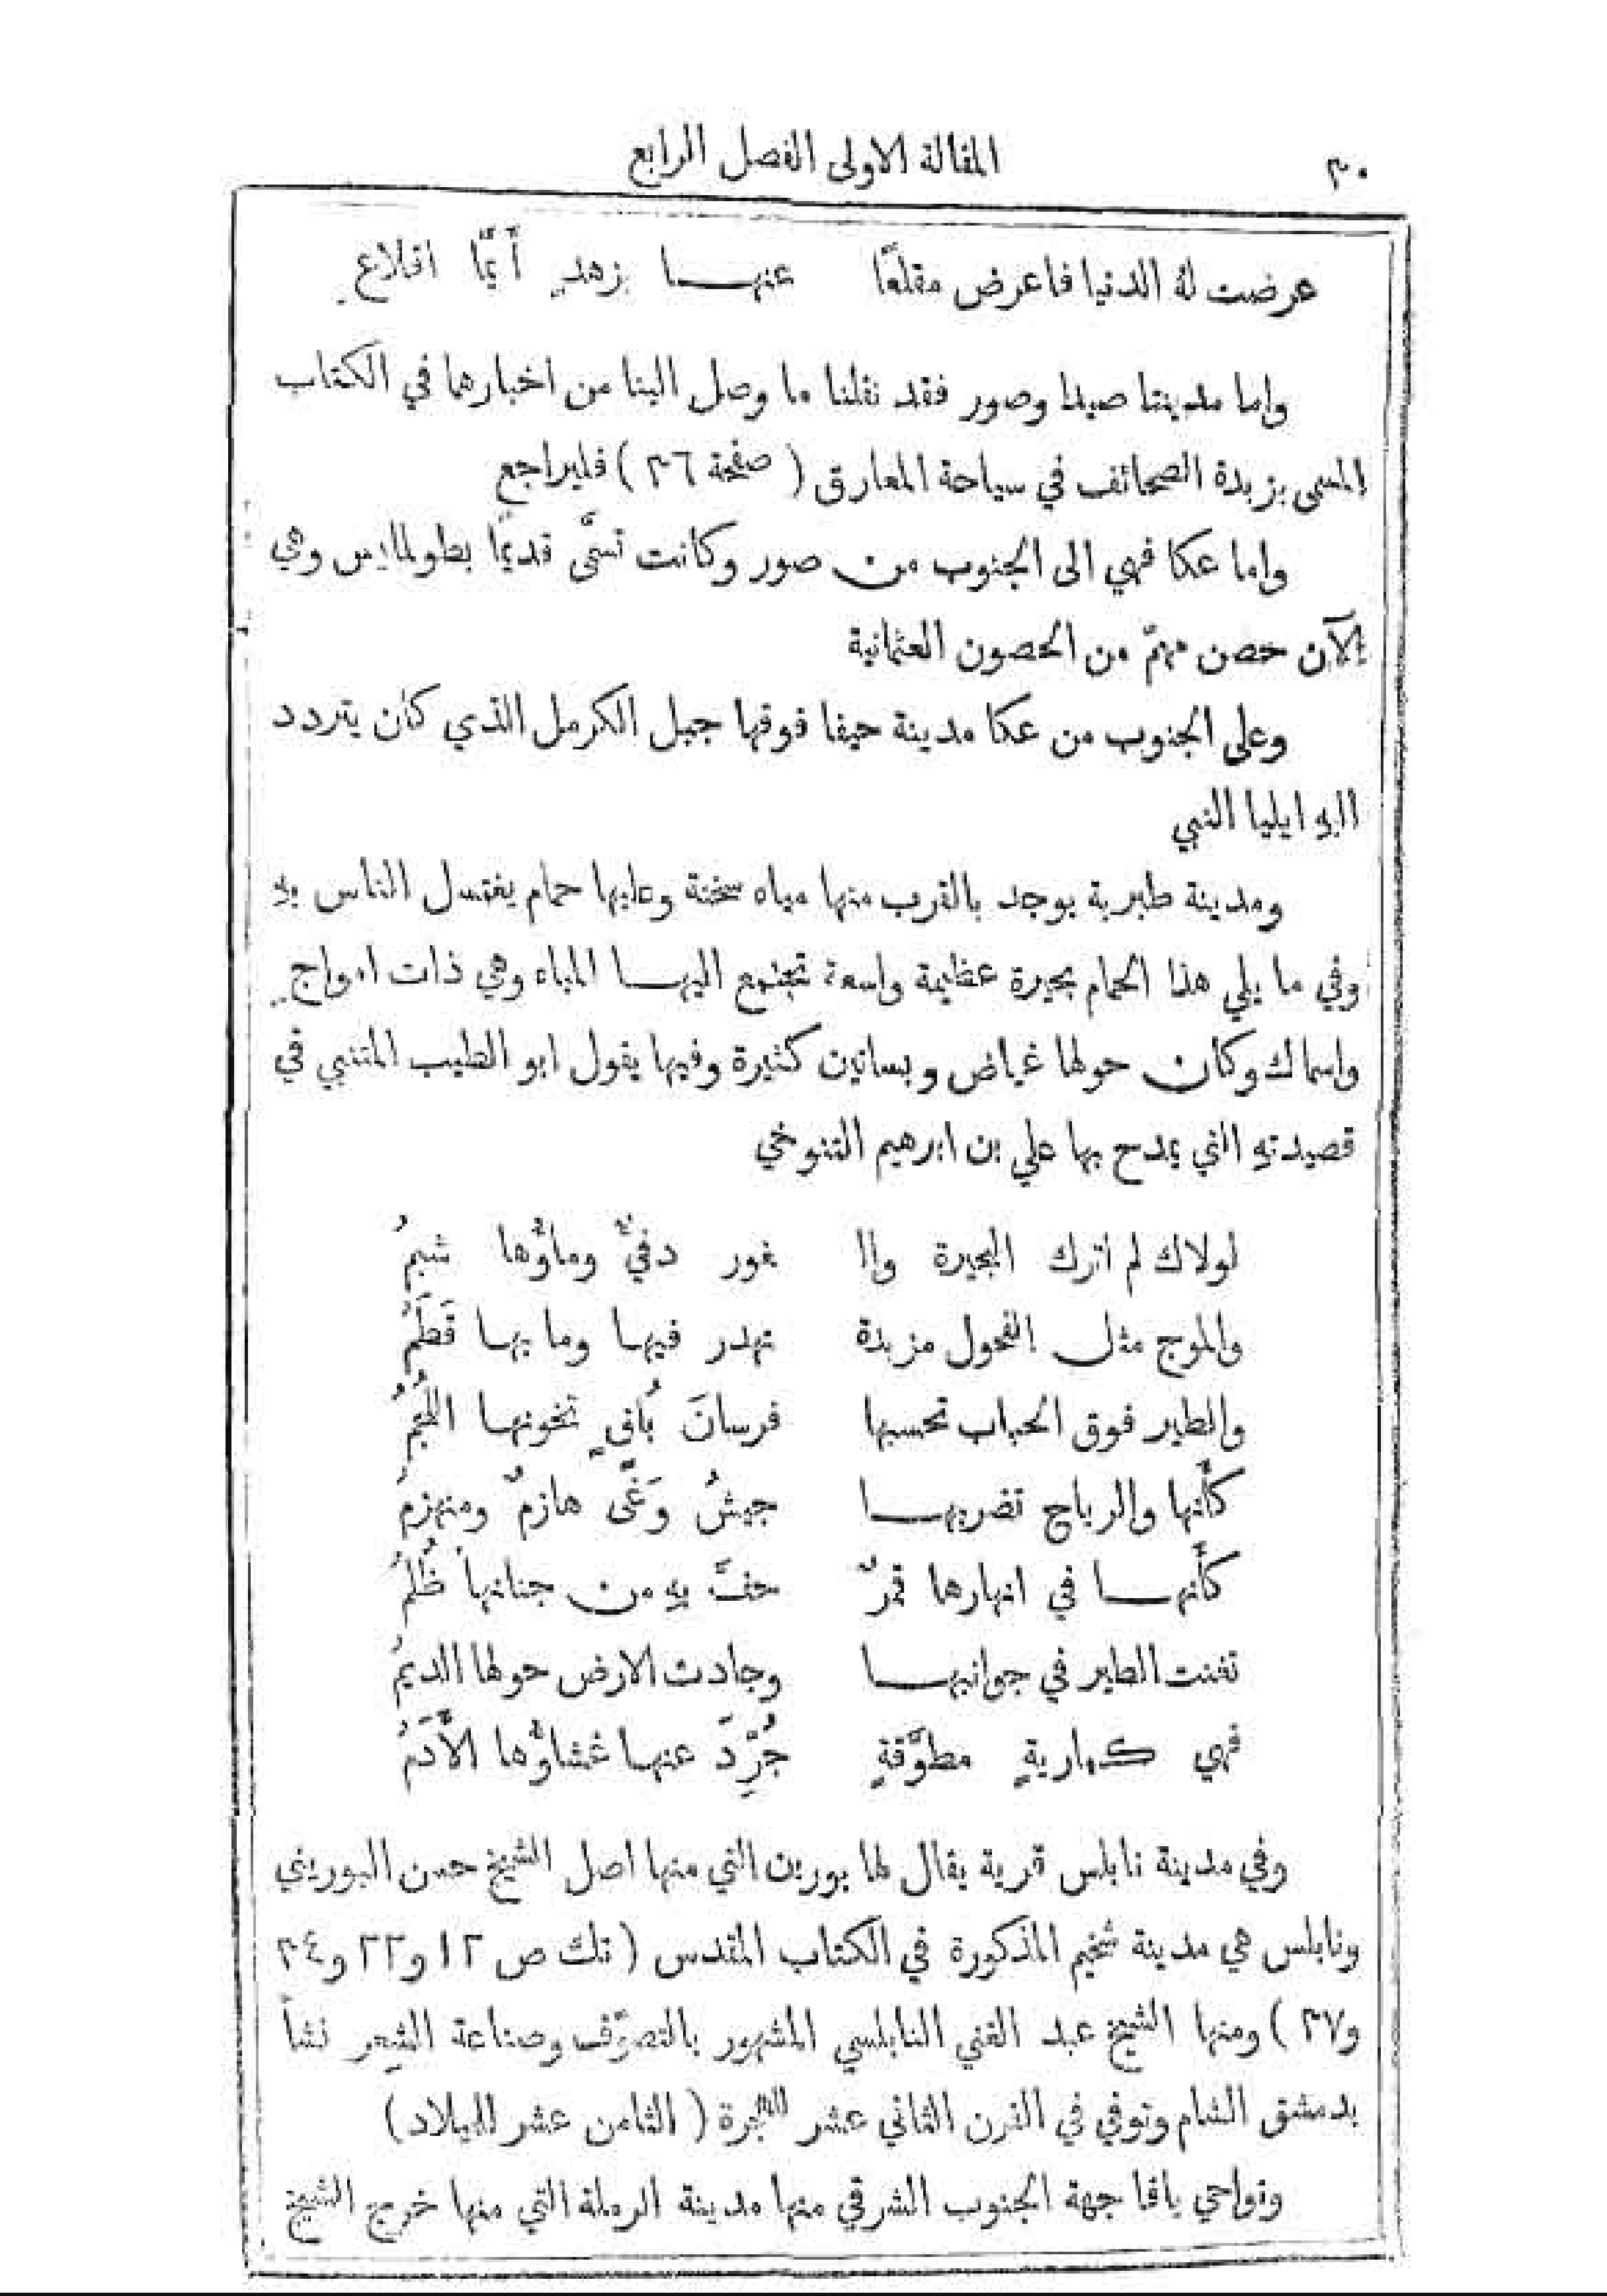 ٣٠
المقالة الاولى الفصل الرابع
عرضت لهُ الدنيا فاعرض مقلعًا عنهـا بزهدٍ أَيَّما اقلاعِ
واما مدينتا صيدا وصور فقد نقلنا ما وصل الينا من اخبارها في الكتاب
المسمى بزبدة الصحائف في سياحة المعارف (صفحة ٣٦) فليراجع
واما عكا فهي الى الجنوب من صور وكانت تسمَّى قديمًا بطولمايس وهي
الآن حصن مهمّ من الحصون العثمانية
وعلى الجنوب من عكا مدينة حيفا فوقها جبل الكرمل الذي كان يتردد
اليهِ ايليا النبي
ومدينة طبرية يوجد بالقرب منها مياه سخنة وعليها حمام يغتسل الناس بهِ
وفي ما يلي هذا الحمام بحيرة عظيمة واسعة تجتمع اليهـا المياه وهي ذات امواجٍ
واسماك وكان حولها غياض وبساتين كثيرة وفيها يقول ابو الطيب المتنبي في
قصيدتهِ التي يمدح بها علي بن ابرهيم التنوخي
لولاك لم اترك البحيرة والـ غور دفيٌّ وماؤُها شبمُ
والموج مثل الفحول مزبدة تهدر فيها وما بها قَطَمُ
والطير فوق الحباب تحسبها فرسانَ بُلقٍ تخونها اللُّجُمُ
كأَنها والرياح تضربهـا جيشُ وَغًى هازمٌ ومنهزمُ
كأَنهـا في انهارها قمرٌ حفَّ بهِ من جنانها ظُلَمُ
تغنت الطير في جوانبهـا وجادت الارض حولها الديمُ
فهي كمارِيةٍ مطوَّقةٍ جُرِّدَ عنها غشاؤُها الأَدَمُ
وفي مدينة نابلس قرية يقال لها بورين التي منها اصل الشيخ حسن البوريني
ونابلس هي مدينة شخيم المذكورة في الكتاب المقدس (تك ص ١٢ و٣٣ و٣٤
و٣٧) ومنها الشيخ عبد الغني النابلسي المشهور بالتصوّف وصناعة الشعر نشأَ
بدمشق الشام وتوفي في القرن الثاني عشر للهجرة (الثامن عشر للميلاد)
ونواحي يافا جهة الجنوب الشرقي منها مدينة الرملة التي منها خرج الشيخ